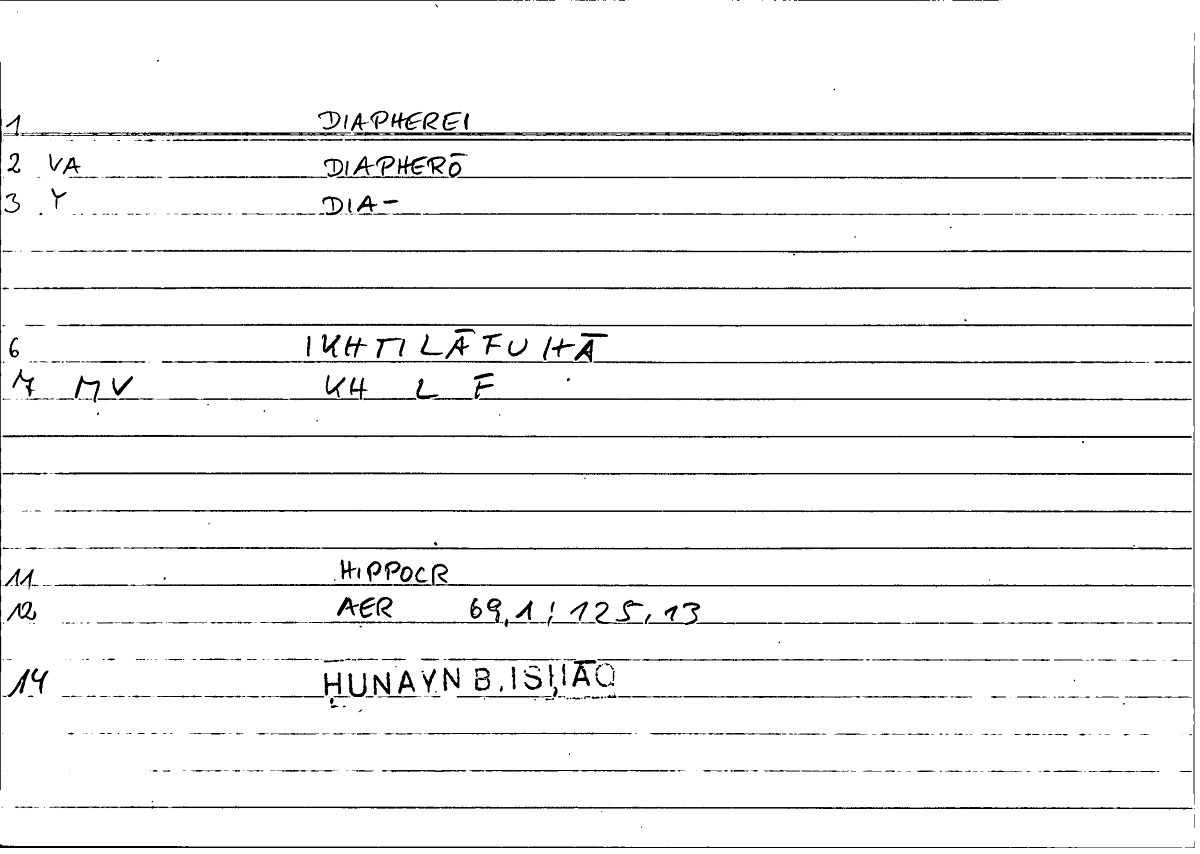 1 DIAPHEREI
2 VA DIAPHERŌ
3 Y DIA-
6 IKHTILĀFUHĀ
7 MV KH L F
11 HIPPOCR
12 AER 69,1; 125,13
14 ḤUNAYN B. ISḤĀQ